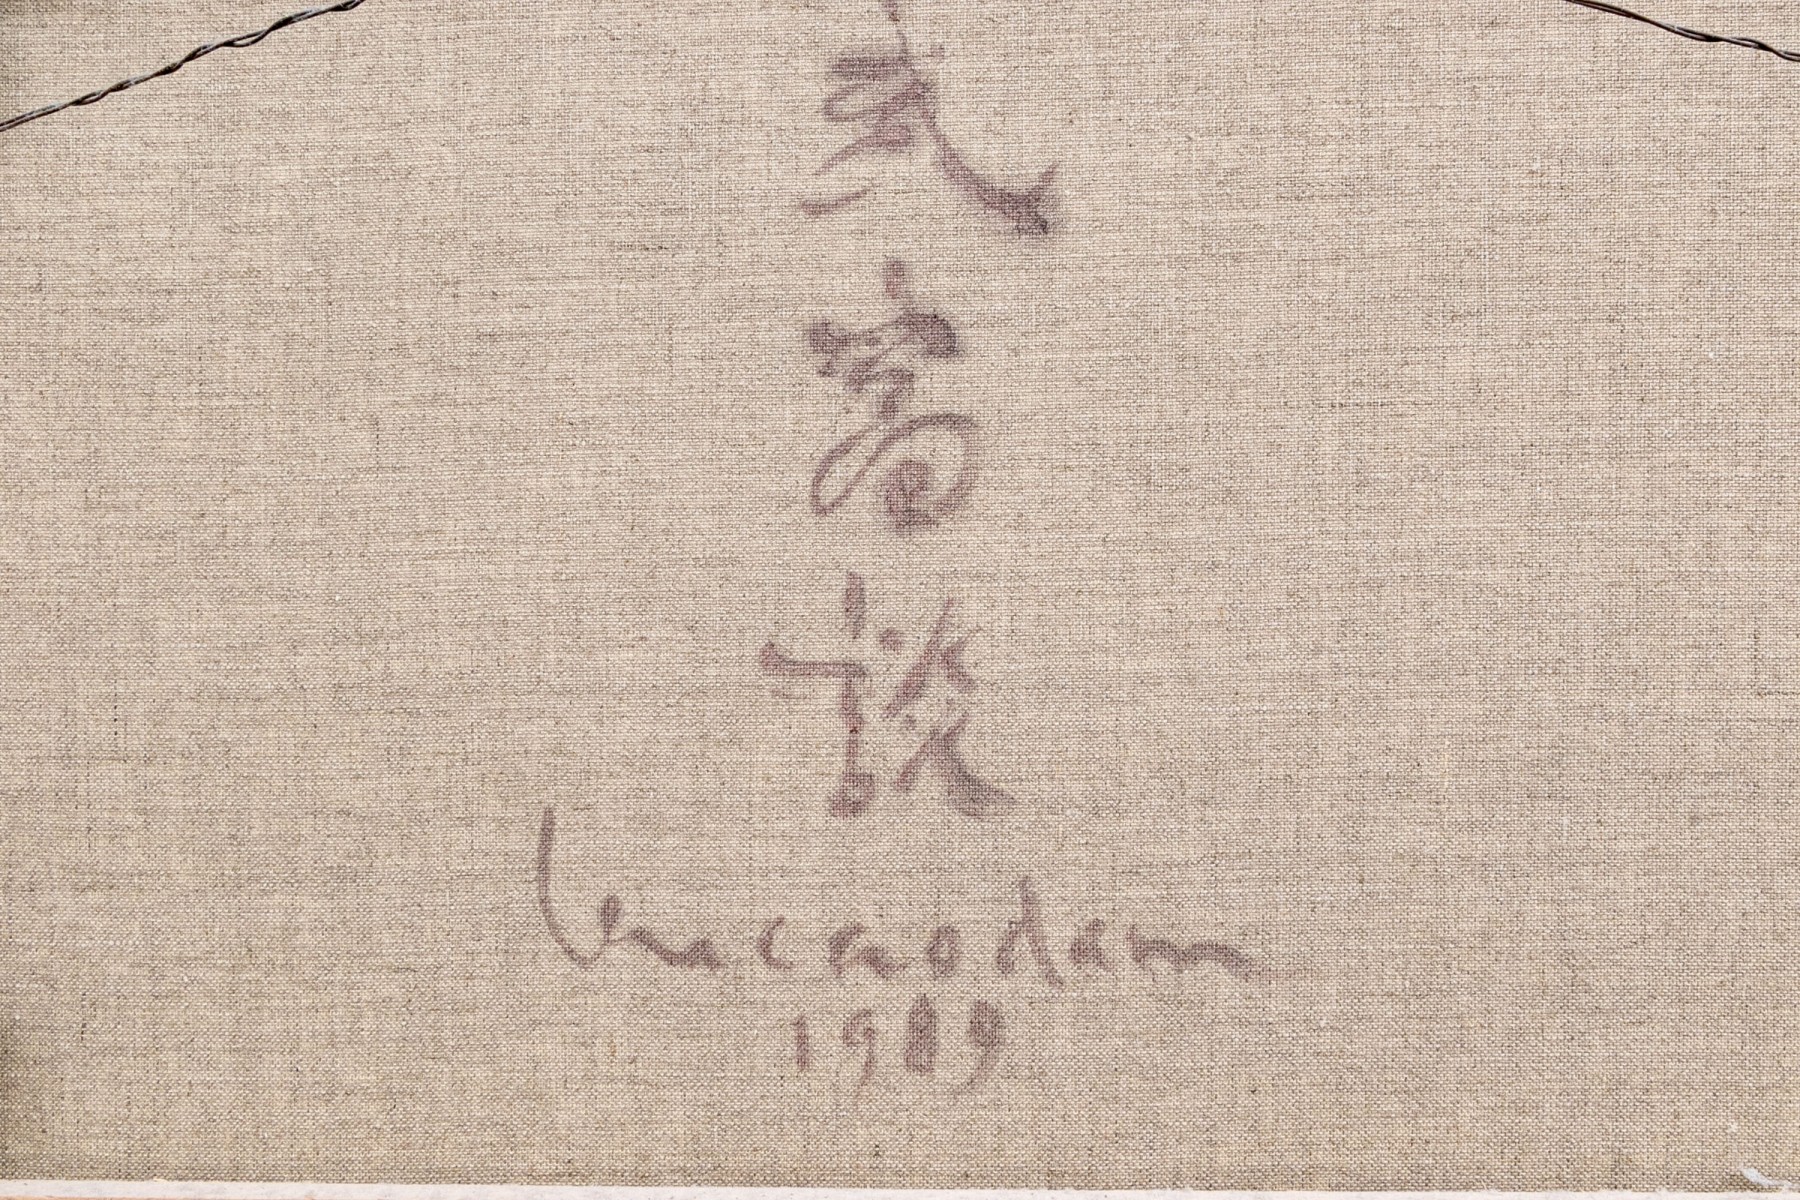 武高談
Vucaodam
1989